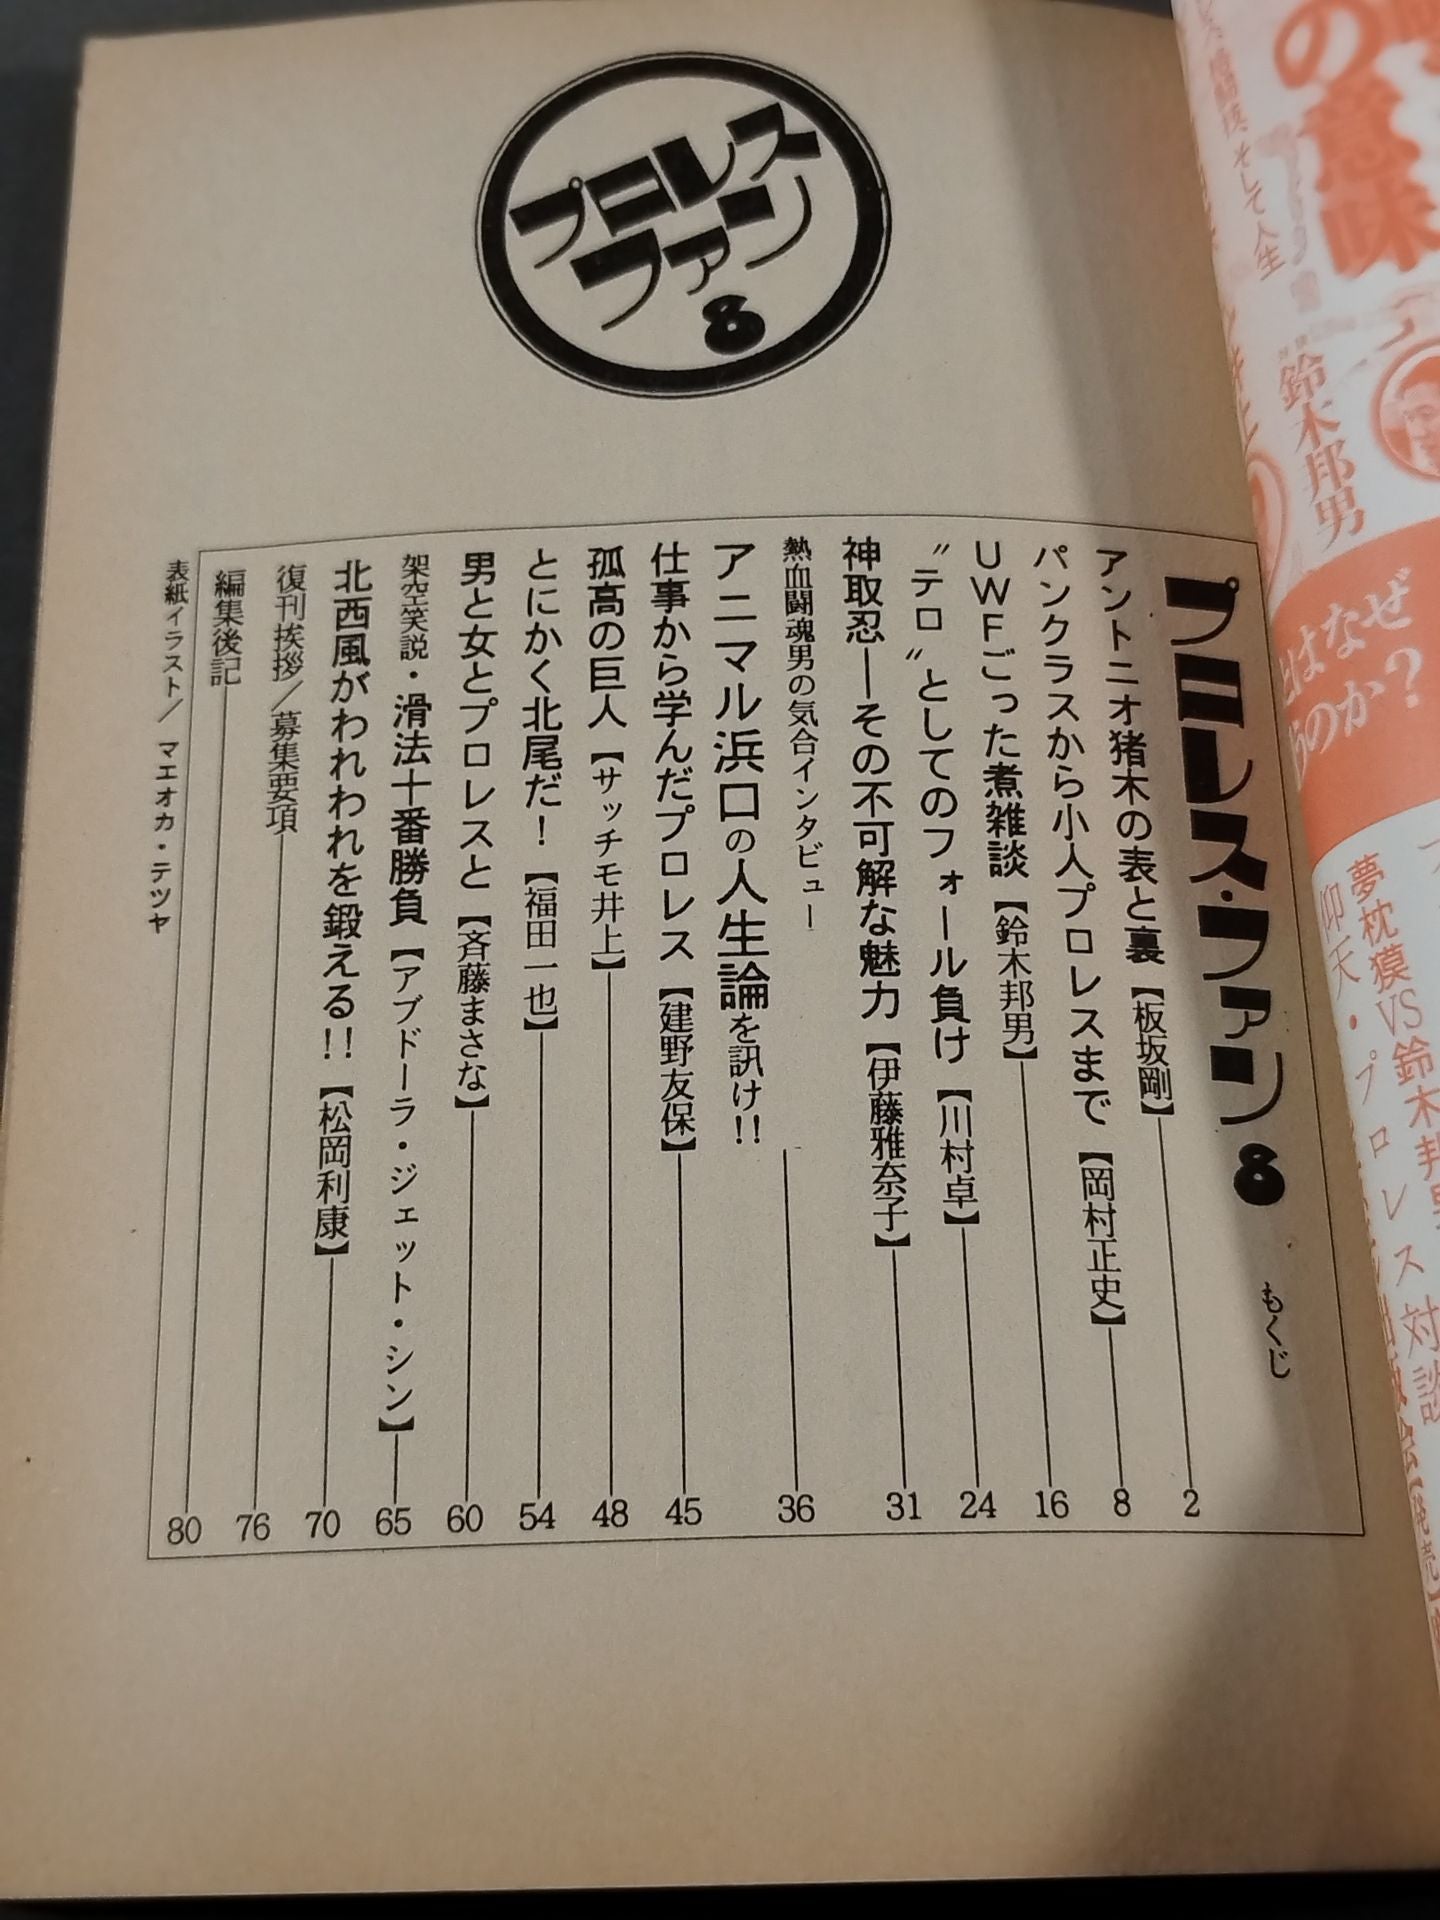 プロレス
ファン
8
プロレス・ファン8 もくじ
アントニオ猪木の表と裏【板坂剛】 2
パンクラスから小人プロレスまで【岡村正史】 8
UWFごった煮雑談【鈴木邦男】 16
〝テロ〟としてのフォール負け【川村卓】 24
神取忍―その不可解な魅力【伊藤雅奈子】 31
熱血闘魂男の気合インタビュー
アニマル浜口の人生論を訊け!! 36
仕事から学んだプロレス【建野友保】 45
孤高の巨人【サッチモ井上】 48
とにかく北尾だ!【福田一也】 54
男と女とプロレスと【斉藤まさな】 60
架空笑説・滑法十番勝負【アブドーラ・ジェット・シン】 65
北西風がわれわれを鍛える!!【松岡利康】 70
復刊挨拶/募集要項 76
編集後記 80
表紙イラスト/マエオカ・テツヤ
の意味
そして人生
鈴木邦男
とはなぜ
うのか?
夢枕獏VS鈴木邦男
プロレス対談
仰天・プロレス
【発売】